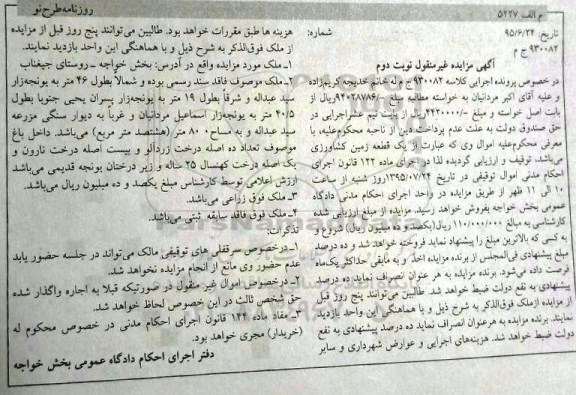 م الف ۵۲۲۷
روزنامه طرح نو
تاریخ: ۹۵/۶/۲۴
شماره:
۹۳۰۰۸۲ ج م
آگهی مزایده غیرمنقول نوبت دوم
در خصوص پرونده اجرایی کلاسه ۹۳۰۰۸۲ ج م له خانم خدیجه کریم‌زاده
و علیه آقای اکبر مردانیان به خواسته مطالبه مبلغ ۹۴۰۲۸۷۸۶/- ریال از
بابت اصل خواسته و مبلغ ۴۲۲۰۰۰۰/- ریال از بابت نیم عشر اجرایی در
حق صندوق دولت به علت عدم پرداخت دین از ناحیه محکوم‌علیه، با
معرفی محکوم‌علیه اموال وی که عبارت از یک قطعه زمین کشاورزی
می‌باشد، توقیف و ارزیابی گردیده لذا در اجرای ماده ۱۲۲ قانون اجرای
احکام مدنی اموال توقیفی در تاریخ ۱۳۹۵/۰۷/۲۴ روز شنبه از ساعت
۱۰ الی ۱۱ ظهر از طریق مزایده در واحد اجرای احکام مدنی دادگاه
عمومی بخش خواجه بفروش خواهد رسید. مزایده از مبلغ ارزیابی شده
کارشناسی به مبلغ ۱۱۰/۰۰۰/۰۰۰ ریال (یکصد و ده میلیون ریال) شروع و
به کسی که بالاترین مبلغ را پیشنهاد نماید فروخته خواهد شد و ده درصد
مبلغ پیشنهادی فی‌المجلس از برنده مزایده اخذ و به مابقی حداکثر یک‌ماه
فرصت داده می‌شود. برنده مزایده به هر عنوان انصراف نماید ده درصد
پیشنهادی به نفع دولت ضبط خواهد شد. طالبین می‌توانند پنج روز قبل
از مزایده از ملک فوق‌الذکر به شرح ذیل و با هماهنگی این واحد بازدید
نمایند. برنده مزایده به هرعنوان انصراف نماید ده درصد پیشنهادی به نفع
دولت ضبط خواهد شد. هزینه‌های اجرایی و عوارض شهرداری و سایر
هزینه ها طبق مقررات خواهد بود. طالبین می‌توانند پنج روز قبل از مزایده
از ملک فوق‌الذکر به شرح ذیل و با هماهنگی این واحد بازدید نمایند.
۱_ملک مورد مزایده واقع در آدرس: بخش خواجه _ روستای جیغناب
۲_ملک موصوف فاقد سند رسمی بوده و شمالا بطول ۴۶ متر به یونجه‌زار
سید عبداله و شرقا بطول ۱۹ متر به یونجه‌زار پسران یحیی جنوبا بطول
۴۰/۵ متر به یونجه‌زار اسماعیل مردانیان و غربا به دیوار سنگی مزرعه
سید عبداله و به مساحت ۸۰۰ متر (هشتصد متر مربع) می‌باشد. داخل باغ
موصوف تعداد ده اصله درخت زردآلو و بیست اصله درخت نارون و
یک اصله درخت کهنسال ۲۵ ساله و زیر درختان یونجه قدیمی می‌باشد
ارزش اعلامی توسط کارشناس مبلغ یکصد و ده میلیون ریال می‌باشد.
۳_ملک فوق زراعی می‌باشد.
۴_ملک فوق فاقد سابقه ثبتی می‌باشد.
تذکرات:
۱_درخصوص سرقفلی های توقیفی مالک می‌تواند در جلسه حضور یابد
عدم حضور وی مانع از انجام مزایده نخواهد شد.
۲_درخصوص اموال غیر منقول در صورتیکه قبلا به اجاره واگذار شده
حق شخص ثالث در این خصوص لحاظ خواهد شد.
۳_مفاد ماده ۱۴۴ قانون اجرای احکام مدنی در خصوص محکوم له
(خریدار) مجری خواهد بود.
دفتر اجرای احکام دادگاه عمومی بخش خواجه